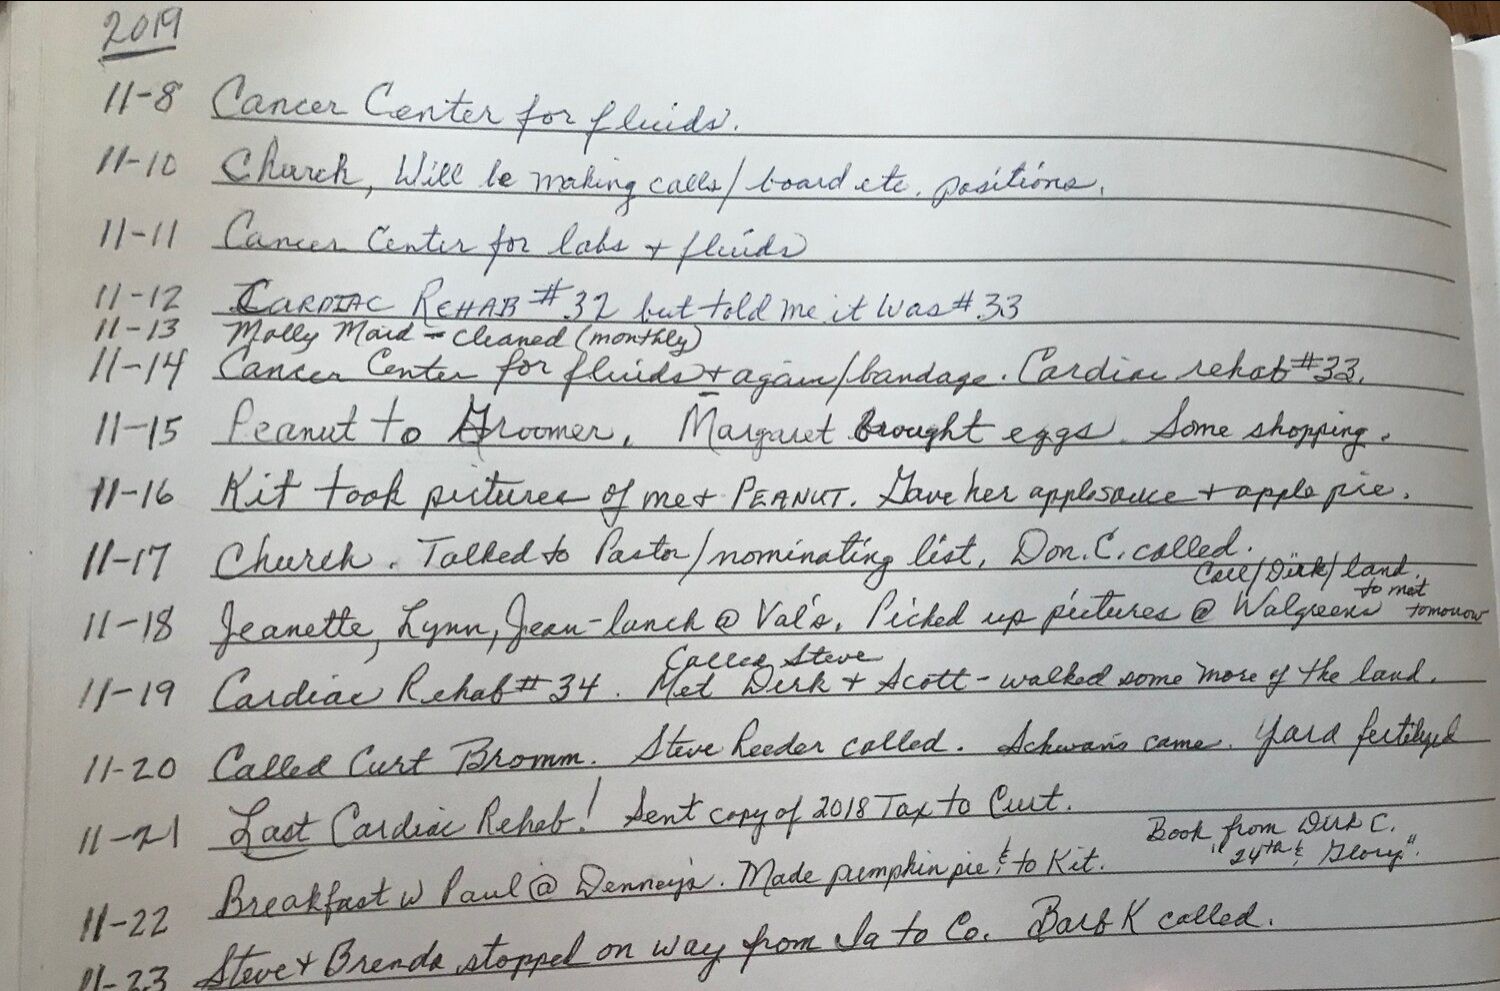 2019
11-8 Cancer Center for fluids.
11-10 Church, Will be making calls/board etc. positions.
11-11 Cancer Center for labs + fluids
11-12 CARDIAC REHAB #32 but told me it was #33
11-13 Molly Maid - cleaned (monthly)
11-14 Cancer Center for fluids + again/bandage. Cardiac rehab #33.
11-15 Peanut to Groomer, Margaret brought eggs. Some shopping.
11-16 Kit took pictures of me + PEANUT. Gave her applesauce + apple pie.
11-17 Church. Talked to Pastor/nominating list, Don. C. called.
Call/Dirk/land.
to met
11-18 Jeanette, Lynn, Jean-lunch @ Val's. Picked up pictures @ Walgreens tomorrow
Called Steve
11-19 Cardiac Rehab #34. Met Dirk + Scott - walked some more of the land.
11-20 Called Curt Bromm. Steve Reeder called. Schwan's came. Yard fertilized
11-21 Last Cardiac Rehab! Sent copy of 2018 Tax to Curt.
Book from Dirk C.
"24th & Glory".
11-22 Breakfast w Paul @ Denney's. Made pumpkin pie & to Kit.
11-23 Steve + Brenda stopped on way from Ia to Co. Barb K called.